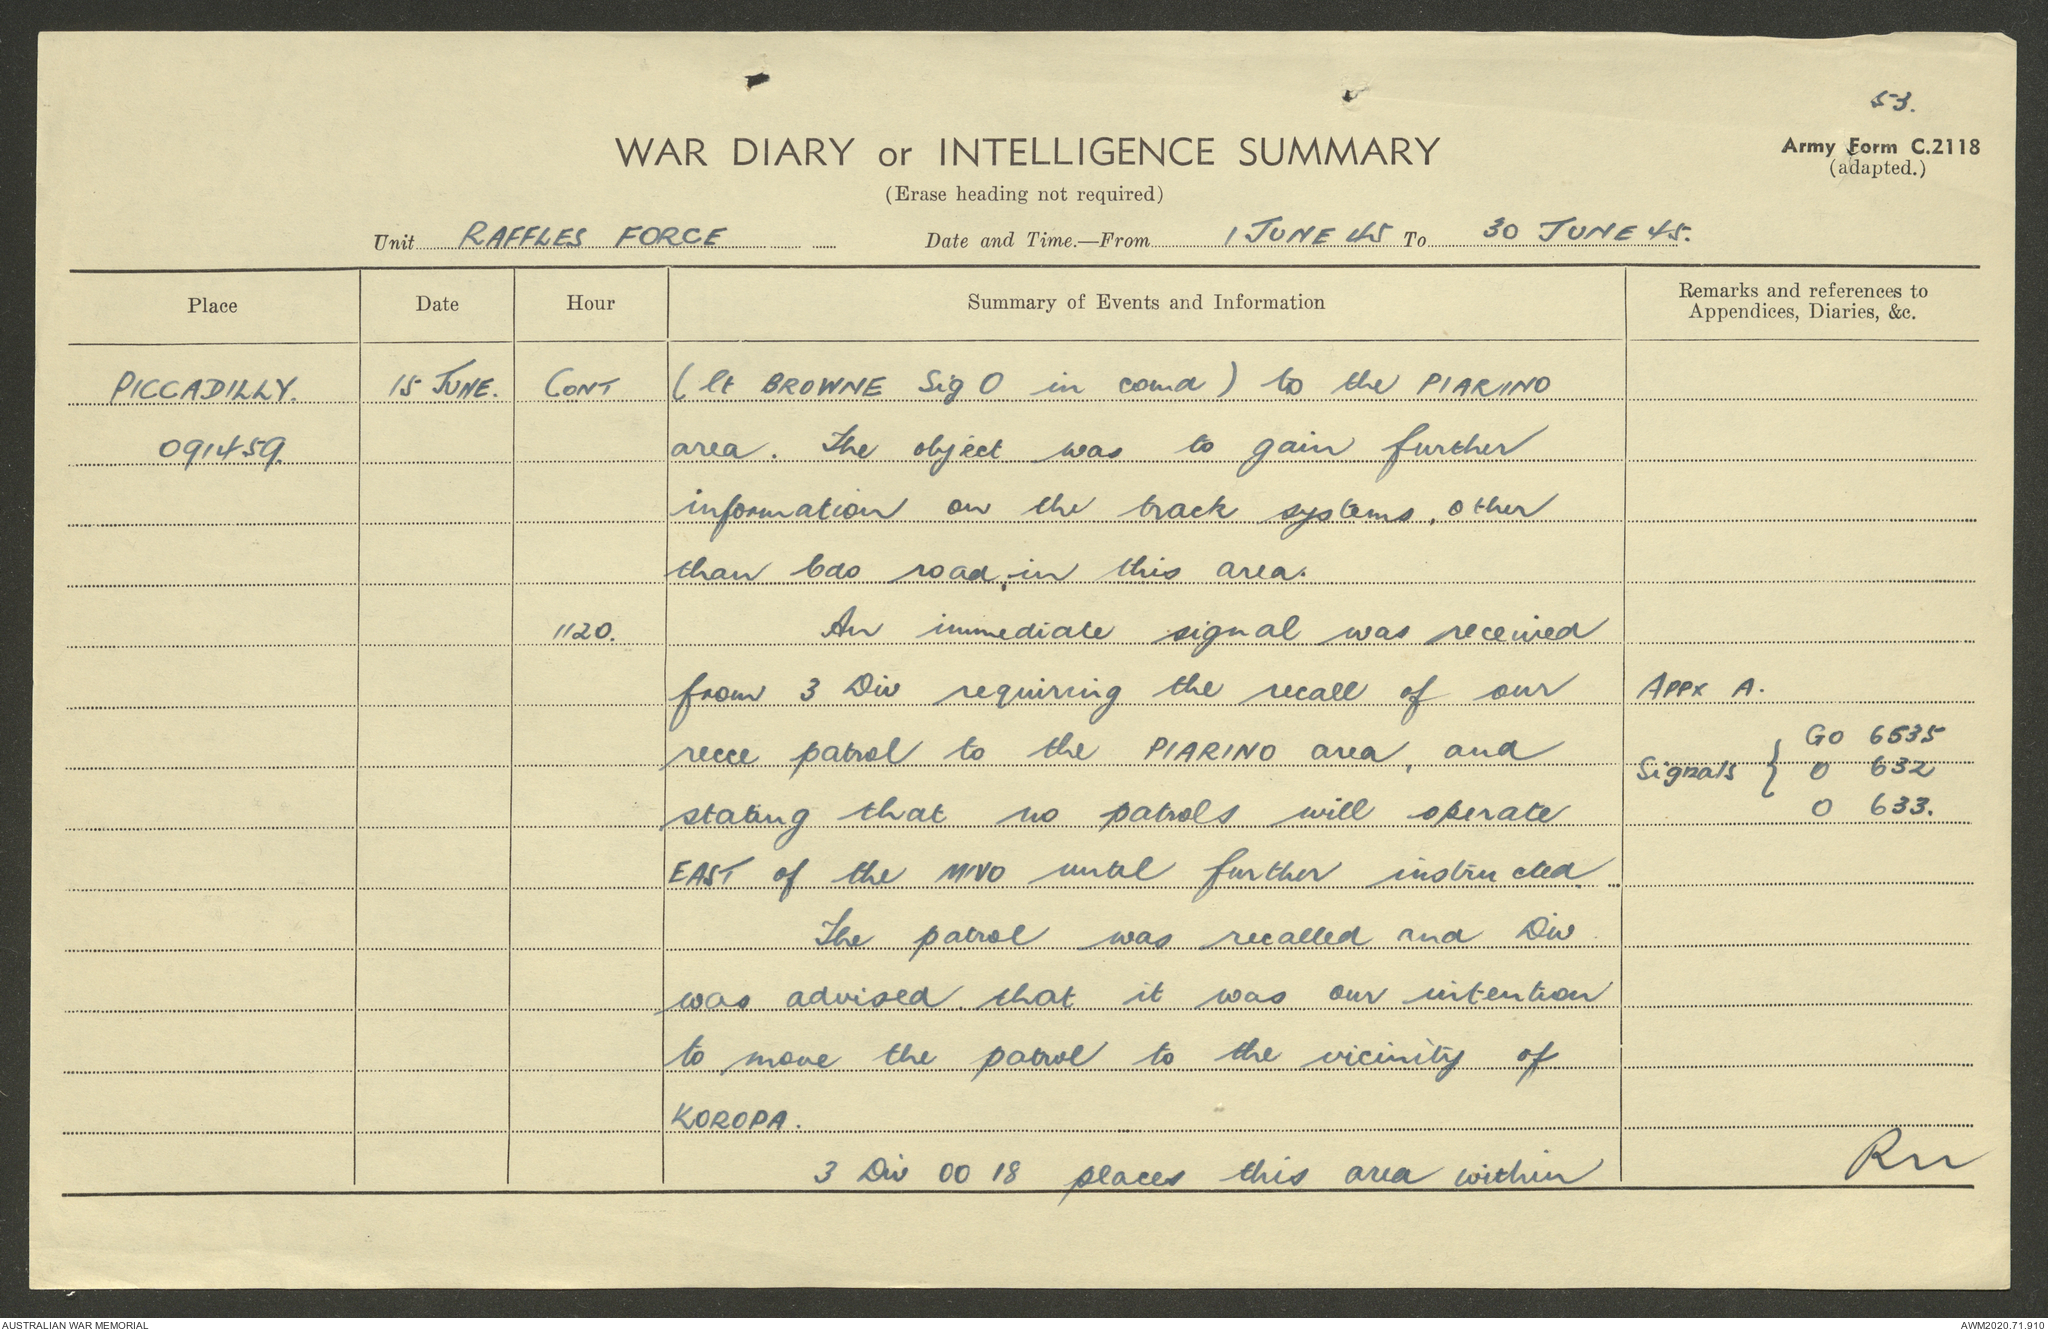 53.
WAR DIARY or INTELLIGENCE SUMMARY
Army Form C.2118
(adapted.)
(Erase heading not required)
Unit RAFFLES FORCE Date and Time.—From 1 JUNE 45 To 30 JUNE 45.
Place Date Hour Summary of Events and Information Remarks and references to
Appendices, Diaries, &c.
PICCADILLY. 15 JUNE. CONT (Lt BROWNE Sig O in comd) to the PIARINO
091459. area. The object was to gain further
information on the track systems, other
than Cdo road, in this area.
1120. An immediate signal was received
from 3 Div requiring the recall of our APPX A.
recce patrol to the PIARINO area, and Signals { GO 6535
O 632
stating that no patrols will operate O 633.
EAST of the MIVO until further instructed.
The patrol was recalled and Div
was advised that it was our intention
to move the patrol to the vicinity of
KOROPA.
3 Div OO 18 places this area within
AUSTRALIAN WAR MEMORIAL
AWM2020.71.910